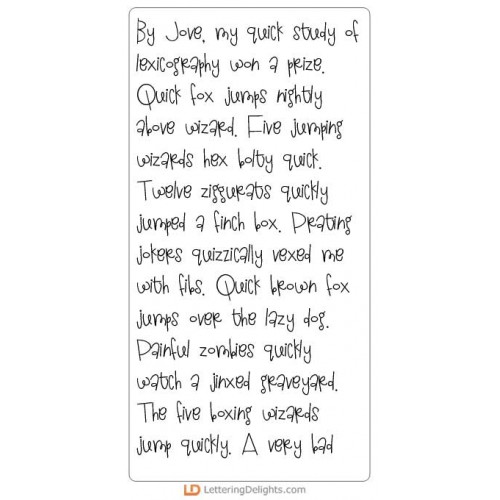 By Jove, my quick study of
lexicography won a prize.
Quick fox jumps nightly
above wizard. Five jumping
wizards hex bolty quick.
Twelve ziggurats quickly
jumped a finch box. Prating
jokers quizzically vexed me
with fibs. Quick brown fox
jumps over the lazy dog.
Painful zombies quickly
watch a jinxed graveyard.
The five boxing wizards
jump quickly. A very bad
LD LetteringDelights.com